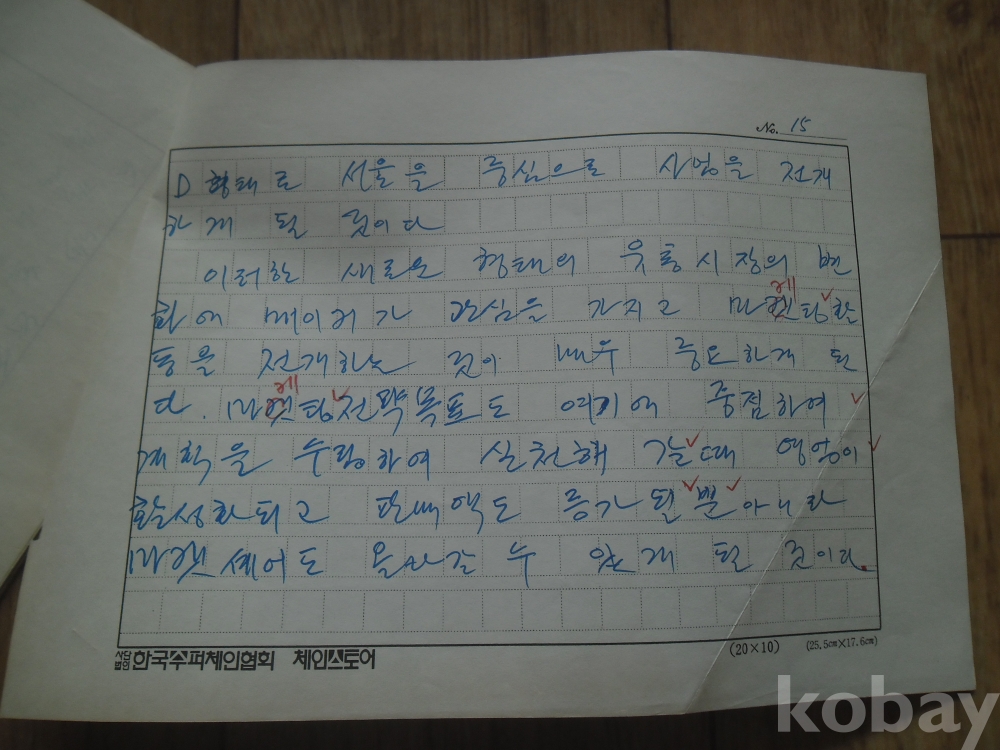 No. 15
D 형태로 서울을 중심으로 사업을 전개
하게 될 것이다
이러한 새로운 형태의 유통시장의 변
화에 메이커가 관심을 가지고 마켓팅활
동을 전개하는 것이 매우 중요하게 된
다. 마켓팅전략목표도 여기에 중점하여
계획을 수립하여 실천해 갈때 영업이
활성화되고 판매액도 증가될뿐아니라
마켓셰어도 올라갈 수 있게 될 것이다.
사단법인 한국수퍼체인협회 체인스토어
(20×10) (25.5cm×17.6cm)
kobay